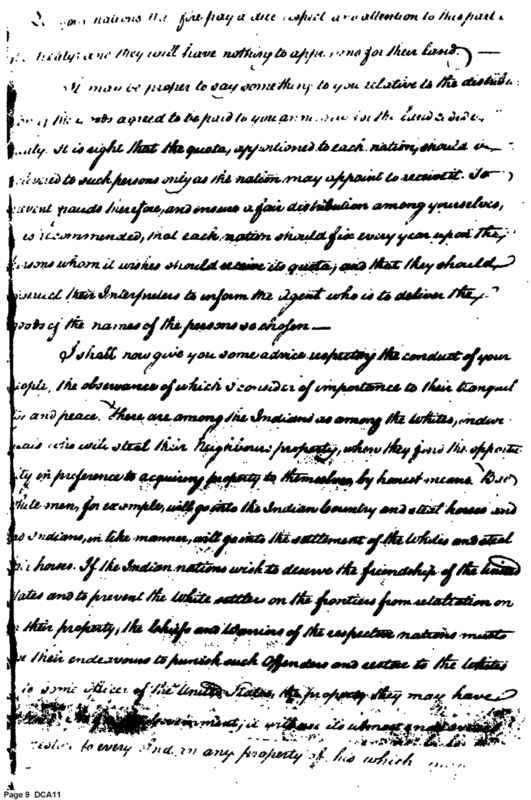 your nations therefore pay a due respect and attention to this part
treaty; and they will have nothing to apprehend for their land.
It may be proper to say something to you relative to the distribu
of the goods agreed to be paid to you
It is right that the quota, apportioned to each nation, should be
to such persons only as the nation may appoint to receive it. To
frauds therefore, and ensure a fair distribution among yourselves,
is recommended, that each nation should fix every year upon the
whom it wishes should receive its quota, and that they should
their Interpreters to inform the Agent who is to deliver the
goods of the names of the persons so chosen —
I shall now give you some advice respecting the conduct of your
people, the observance of which I consider of importance to their tranquil
and peace. There are among the Indians as among the Whites, indivi
who will steal their Neighbours property, when they find the opportu
in preference to acquiring property to themselves, by honest means. Bad
white men, for example, will go into the Indian Country and steal horses and
Indians, in like manner, will go into the settlement of the Whites and steal
horses. If the Indian nations wish to deserve the friendship of the United
and to prevent the White settlers on the frontiers from retaliation on
their property, the Chiefs and Warriors of the respective nations must
their endeavours to punish such Offenders and restore to the Whites
some officer of the United States, the property they may have
Government, it will use its utmost endeavours
to every Indian any property of his which
Page 9 DCA11